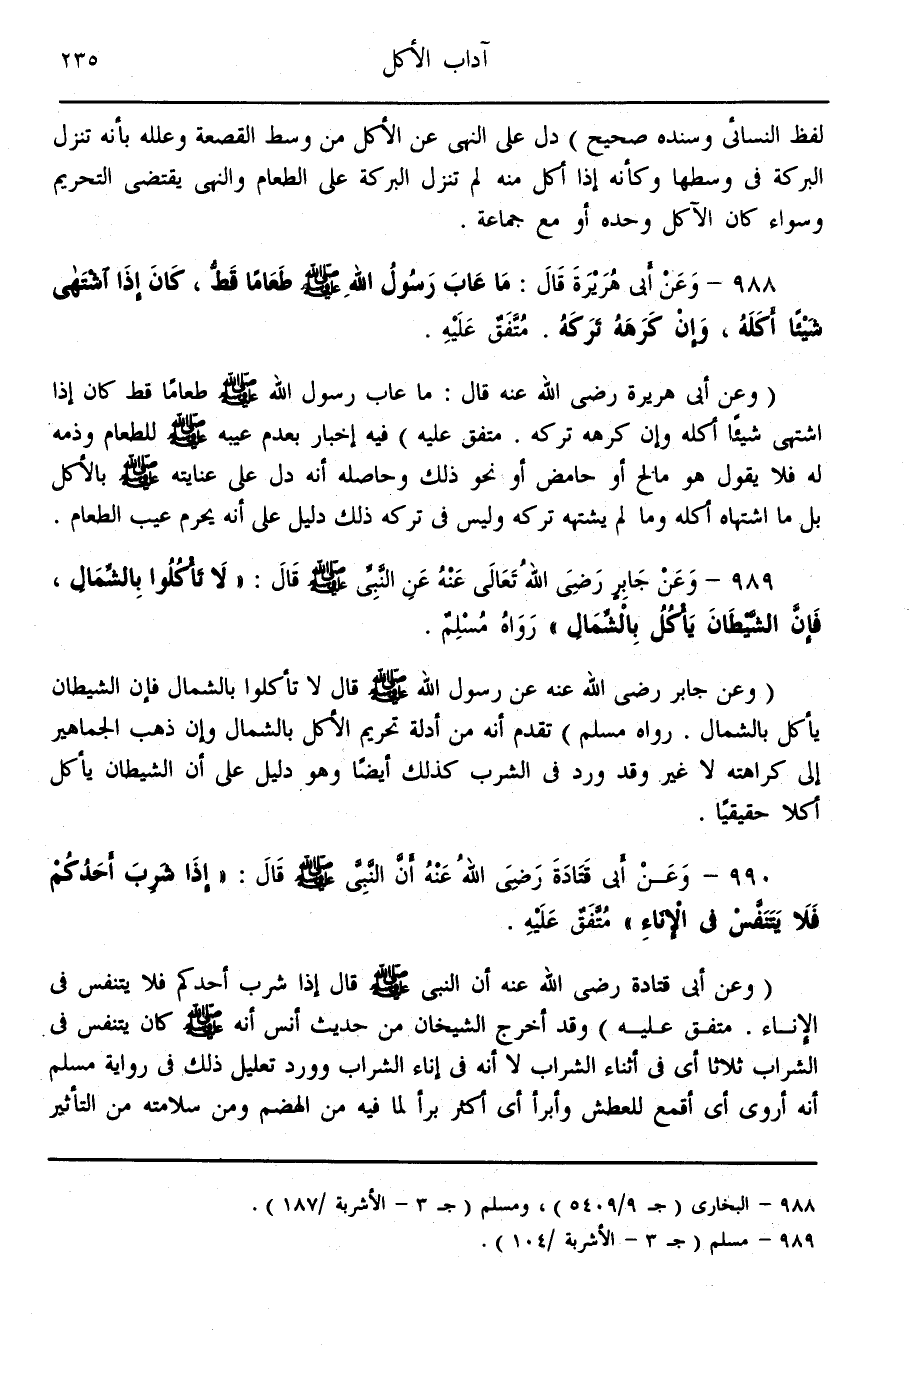 آداب الأكل ٢٣٥
لفظ النسائى وسنده صحيح ) دل على النهى عن الأكل من وسط القصعة وعلله بأنه تنزل
البركة فى وسطها وكأنه إذا أكل منه لم تنزل البركة على الطعام والنهى يقتضى التحريم
وسواء كان الآكل وحده أو مع جماعة .
٩٨٨ – وَعَنْ أَبِى هُرَيْرَةَ قَالَ : مَا عَابَ رَسُولُ اللهِ ﷺ طَعَامًا قَطُّ ، كَانَ إِذَا آشْتَهٰى
شَيْئًا أَكَلَهُ ، وَإِنْ كَرَهَهُ تَرَكَهُ . مُتَّفَقٌ عَلَيْهِ .
( وعن أبى هريرة رضى الله عنه قال : ما عاب رسول الله ﷺ طعامًا قط كان إذا
اشتهى شيئًا أكله وإن كرهه تركه . متفق عليه ) فيه إخبار بعدم عيبه ﷺ للطعام وذمه
له فلا يقول هو مالح أو حامض أو نحو ذلك وحاصله أنه دل على عنايته ﷺ بالأكل
بل ما اشتهاه أكله وما لم يشتهه تركه وليس فى تركه ذلك دليل على أنه يحرم عيب الطعام .
٩٨٩ – وَعَنْ جَابِرٍ رَضِىَ اللهُ تَعَالَى عَنْهُ عَنِ النَّبِىِّ ﷺ قَالَ : « لَا تَأْكُلُوا بِالشِّمَالِ ،
فَإِنَّ الشَّيْطَانَ يَأْكُلُ بِالْشِّمَالِ » رَوَاهُ مُسْلِمٌ .
( وعن جابر رضى الله عنه عن رسول الله ﷺ قال لا تأكلوا بالشمال فإن الشيطان
يأكل بالشمال . رواه مسلم ) تقدم أنه من أدلة تحريم الأكل بالشمال وإن ذهب الجماهير
إلى كراهته لا غير وقد ورد فى الشرب كذلك أيضًا وهو دليل على أن الشيطان يأكل
أكلا حقيقيًا .
٩٩٠ – وَعَـنْ أَبِى قَتَادَةَ رَضِىَ اللهُ عَنْهُ أَنَّ النَّبِىَّ ﷺ قَالَ : « إِذَا شَرِبَ أَحَدُكُمْ
فَلَا يَتَنَفَّسْ فى الْإِنَاءِ » مُتَّفَقٌ عَلَيْهِ .
( وعن أبى قتادة رضى الله عنه أن النبى ﷺ قال إذا شرب أحدكم فلا يتنفس فى
الإنـاء . متفـق عليـه ) وقد أخرج الشيخان من حديث أنس أنه ﷺ كان يتنفس فى
الشراب ثلاثا أى فى أثناء الشراب لا أنه فى إناء الشراب وورد تعليل ذلك فى رواية مسلم
أنه أروى أى أقمع للعطش وأبرأ أى أكثر برأ لما فيه من الهضم ومن سلامته من التأثير
٩٨٨ – البخارى ( جـ ٥٤٠٩/٩ ) ، ومسلم ( جـ ٣ – الأشربة /١٨٧ ) .
٩٨٩ – مسلم ( جـ ٣ – الأشربة /١٠٤ ) .